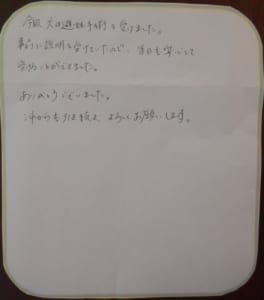 今回 犬の避妊手術を受けました。
事前に説明を受けていたので、当日も安心して
受けることができました。
ありがとうございました。
これからも引き続き、よろしくお願いします。